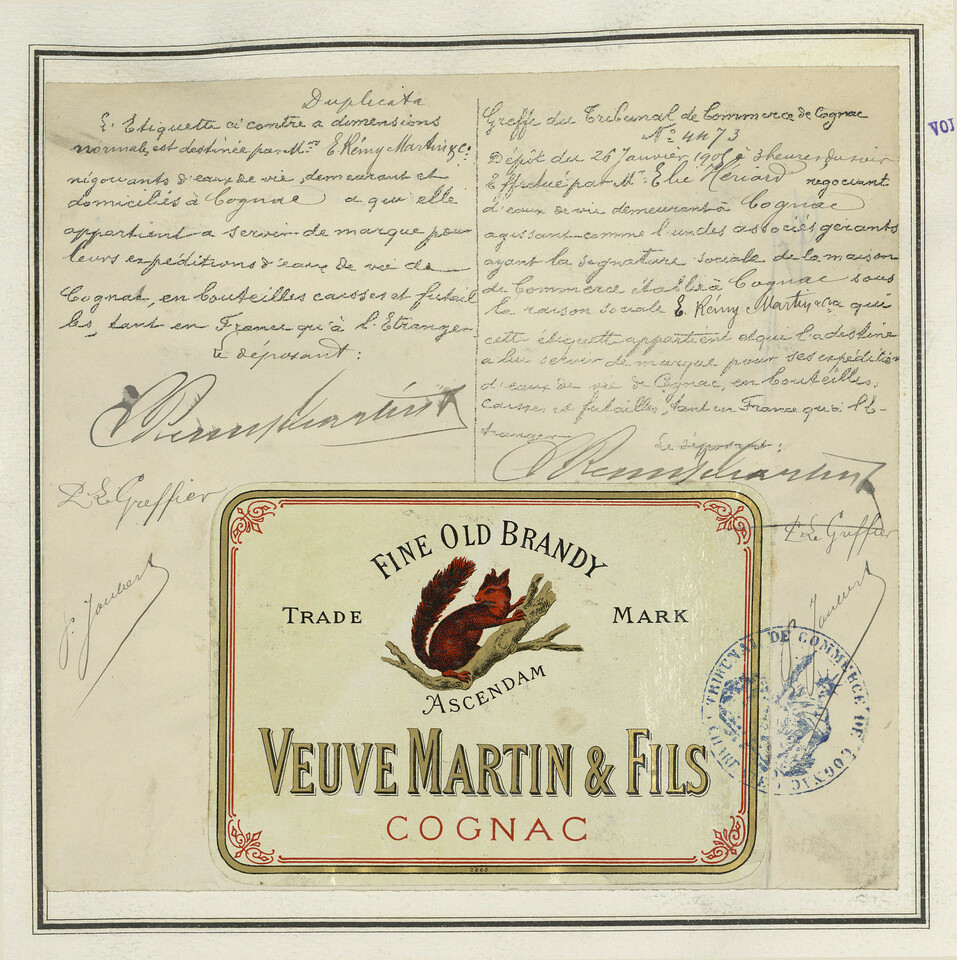 Duplicata
L'Etiquette ci contre a dimensions
normale, est destinée par Mrs E. Rémy Martin & Co
négociants d'eaux de vie, demeurant et
domiciliés à Cognac a qui elle
appartient a servir de marque pour
leurs expéditions d'eaux de vie de
Cognac, en bouteilles caisses et futail
les, tant en France qu'à l'Etranger
Le déposant:
E Remy Martin & Co
P. Le Greffier
P. Joubert
Greffe du Tribunal de Commerce de Cognac
No 4473
Dépôt du 26 Janvier à 3 heures du soir
Effectué par Mr. Elie Hériard négociant
d'eaux de vie demeurant à Cognac
agissant comme l'un des associés gérants
ayant la signature sociale de la maison
de Commerce établie à Cognac sous
la raison sociale E. Rémy Martin & Co a qui
cette étiquette appartient et qui l'a destine
a lui servir de marque pour ses expédition
d'eaux de vie de Cognac, en bouteilles,
caisses et futailles, tant en France qu'à l'E-
tranger
Le déposant:
E Remy Martin & Co
P. Le Greffier
P. Joubert
VOI
FINE OLD BRANDY
TRADE MARK
ASCENDAM
VEUVE MARTIN & FILS
COGNAC
2660
TRIBUNAL DE COMMERCE DE COGNAC